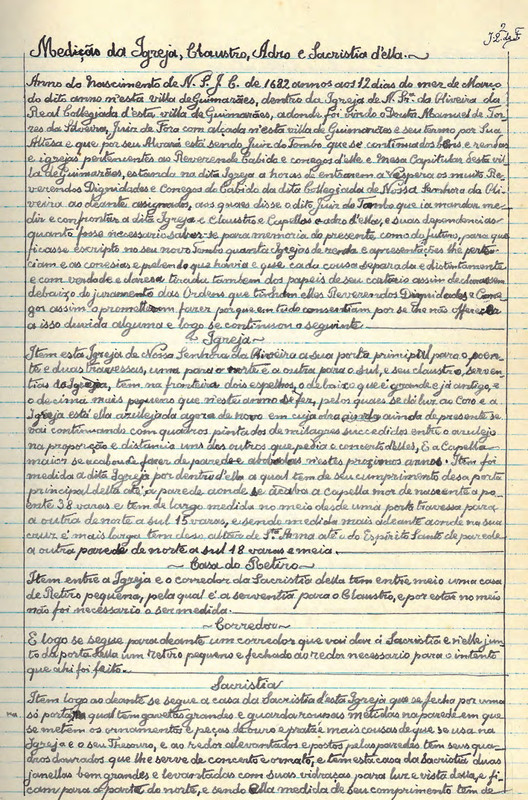 Medição da Igreja, Claustro, Adro e Sacristia d'ella.
Anno do Nascimento de N. S. J. C. de 1682 annos aos 12 dias do mez de Março
do dito anno n'esta villa de Guimarães, dentro da Igreja de N. Sr.ª da Oliveira da
Real Collegiada d'esta villa de Guimarães, adonde foi vindo o Doutor Manuel de Tor-
res da Silveira, Juiz de Fora com alçada n'esta villa de Guimarães e seu termo por Sua
Alteza e que por seu Alvará está sendo Juiz do Tombo, que se continua dos bens, e rendas
e igrejas pertencentes ao Reverendo Cabido e conegos d'elle e Mesa Capitular desta vil-
la de Guimarães, estando na dita Igreja a horas de entrarem a Vespera os muito Re-
verendos Dignidades e Conegos do Cabido da dita Collegiada de Nossa Senhora da Oli-
veira ao deante assignados, aos quaes disse o dito Juiz do Tombo que ia mandar me-
dir e confrontar a dita Igreja e Claustro e Capellas e adro d'elles, e suas dependencias
quanto fosse necessario saber-se para memoria do presente como do futuro, para que
ficasse escripto no seu novo Tombo quantas Igrejas de renda e apresentações lhe perten-
ciam e as conesias e prebendo que havia e que cada cousa separada e distentamente
e com verdade e clareza tirada tambem dos papeis de seu cartorio assim declarassem
debaixo do juramento das Ordens que tinham elles Reverendos Dignidades e Cone-
gos assim o prometteram fazer porque em tudo consentiam por se lhe não offerecer
a isso duvida alguma e logo se continuou o seguinte.
Igreja
Item esta Igreja de Nossa Senhora da Oliveira a sua porta principal para o poen-
te e duas travessas, uma para o norte e a outra para o sul, e seu claustro, serven-
tias da Igreja, tem na fronteira dois espelhos, o debaixo que é grande e já antigo, e
o de cima mais pequeno que n'este anno se fez, pelos quaes se dá luz ao Coro e a
Igreja está ella azulejada agora de novo em cuja obra ainda de presente se
vai continuando com quadros pintados de milagres succedidos entre o azulejo
na proporção e distancia uns dos outros que pedia o concerto d'elles, E a Capella
maior se acabou de fazer de parede e abobadas n'estes proximos annos. Item foi
medida a dita Igreja por dentro d'ella a qual tem de seu cumprimento desa porta
principal della até á parede aonde se acaba a Capella mor de nascente a po-
ente 38 varas e tem de largo medida no meio desde uma porta travessa para
a outra de norte a sul 15 varas, e sendo medida mais deante aonde na sua
cruz é mais larga tem deso altar de S.ta Anna até o do Espirito Santo de parede
a outra parede de norte a sul 18 varas e meia.
Casa do Retiro
Item entre a Igreja e o corredor da Sacristia della tem entre meio uma casa
de Retiro pequena, pela qual é a serventia para o Claustro, e por estar no meio
não foi necessario o ser medida.
Corredor
E logo se segue para deante um corredor que vai dar á Sacristia e n'elle jun-
to da porta della um retiro pequeno e fechado ao redor necessario para o intento
que ahi foi feito.
Sacristia
Item logo ao deante se segue a casa da Sacristia d'esta Igreja que se fecha por uma
só porta, na qual tem gavetas grandes e guarda roupas metidas na parede em que
se metem os ornamentos e peças de ouro e prata e mais cousas de que se usa na
Igreja e o seu Thesouro, e ao redor alevantados e postos pelas paredes tem seus qua-
dros dourados que lhe serve de concerto e ornato, e tem esta casa da sacristia duas
janellas bem grandes e levantadas com suas vidraças para luz e vista della, e fi-
cam para a parte do norte, e sendo ella medida de seu comprimento tem de